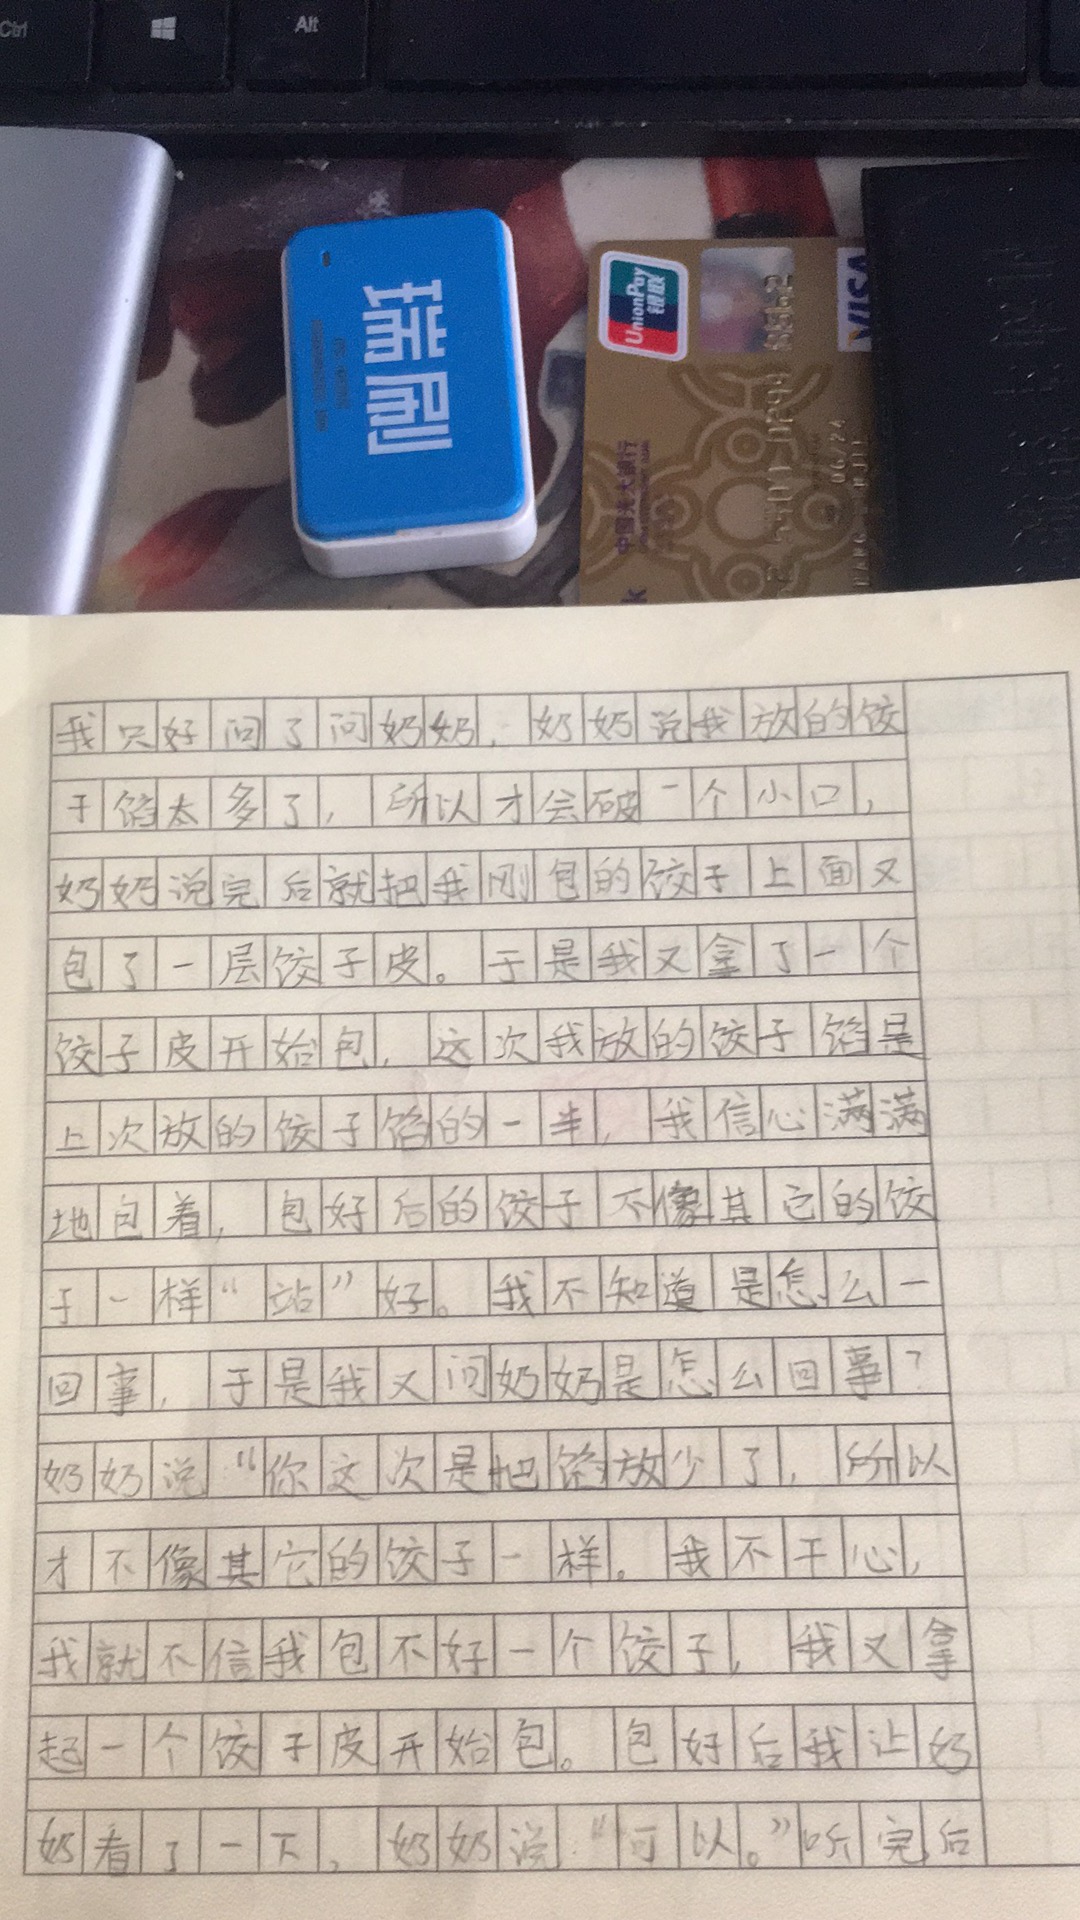 Ctrl
Alt
瑞刷
UnionPay
银联
VISA
中国光大银行
06/24
我只好问了问奶奶，奶奶说我放的饺
子馅太多了，所以才会破一个小口，
奶奶说完后就把我刚包的饺子上面又
包了一层饺子皮。于是我又拿了一个
饺子皮开始包，这次我放的饺子馅是
上次放的饺子馅的一半，我信心满满
地包着，包好后的饺子不像其它的饺
子一样“站”好。我不知道是怎么一
回事，于是我又问奶奶是怎么回事？
奶奶说“你这次是把馅放少了，所以
才不像其它的饺子一样。我不干心，
我就不信我包不好一个饺子，我又拿
起一个饺子皮开始包。包好后我让奶
奶看了一下，奶奶说：“可以。”听完后